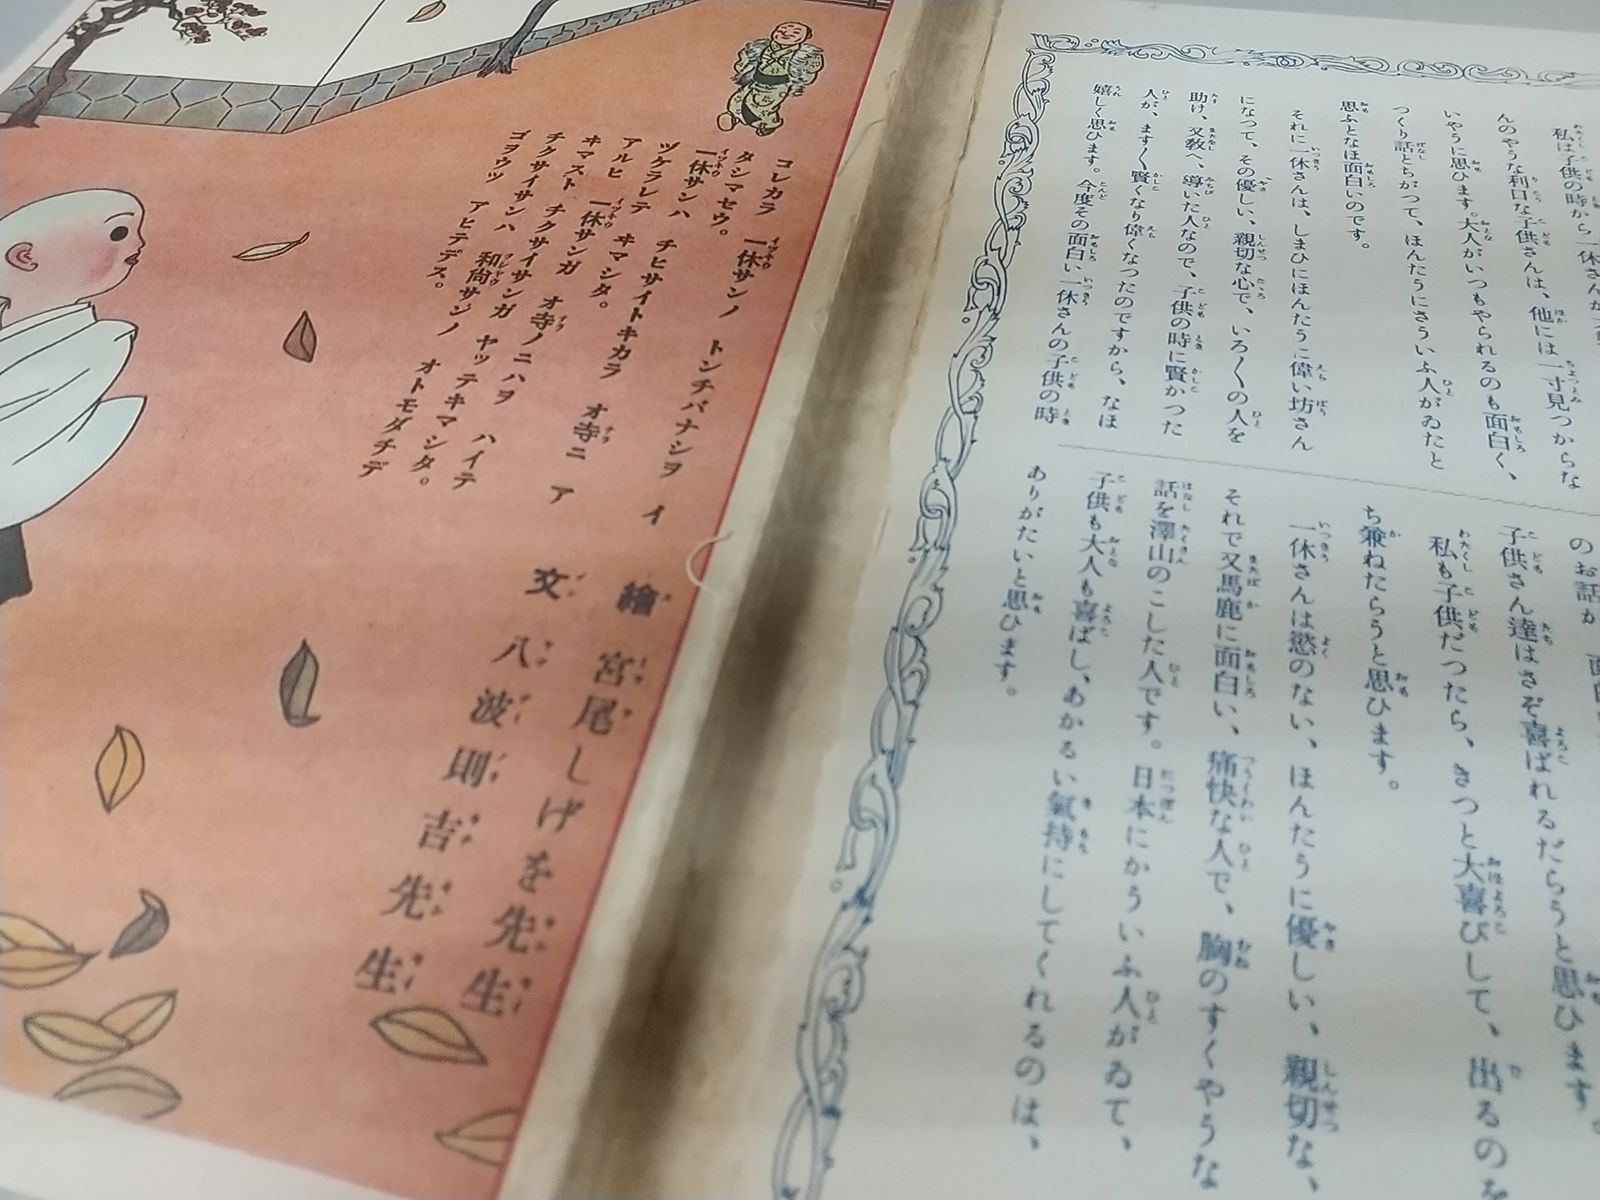 私は子供の時から一休さんが
んのやうな利口な子供さんは、他には一寸見つからな
いやうに思ひます。大人がいつもやられるのも面白く、
つくり話とちがつて、ほんたうにさういふ人がゐたと
思ふとなほ面白いのです。
それに一休さんは、しまひにほんたうに偉い坊さん
になつて、その優しい、親切な心で、いろ〱の人を
助け、又教へ、導いた人なので、子供の時に賢かつた
人が、ます〱賢くなり偉くなつたのですから、なほ
嬉しく思ひます。今度その面白い一休さんの子供の時
のお話が
子供さん達はさぞ喜ばれるだらうと思ひます。
私も子供だつたら、きつと大喜びして、出るのを
ち兼ねたらうと思ひます。
一休さんは慾のない、ほんたうに優しい、親切な、
それで又馬鹿に面白い、痛快な人で、胸のすくやうな
話を澤山のこした人です。日本にかういふ人がゐて、
子供も大人も喜ばし、あかるい氣持にしてくれるのは、
ありがたいと思ひます。
コレカラ 一休サンノ トンチバナシヲ イ
タシマセウ。
一休サンハ チヒサイトキカラ オ寺ニ ア
ヅケラレテ ヰマシタ。
アルヒ 一休サンガ オ寺ノニハヲ ハイテ
ヰマスト チクサイサンガ ヤッテキマシタ。
チクサイサンハ 和尚サンノ オトモダチデ
ゴヲウツ アヒテデス。
繪 宮尾しげを先生
文 八波則吉先生